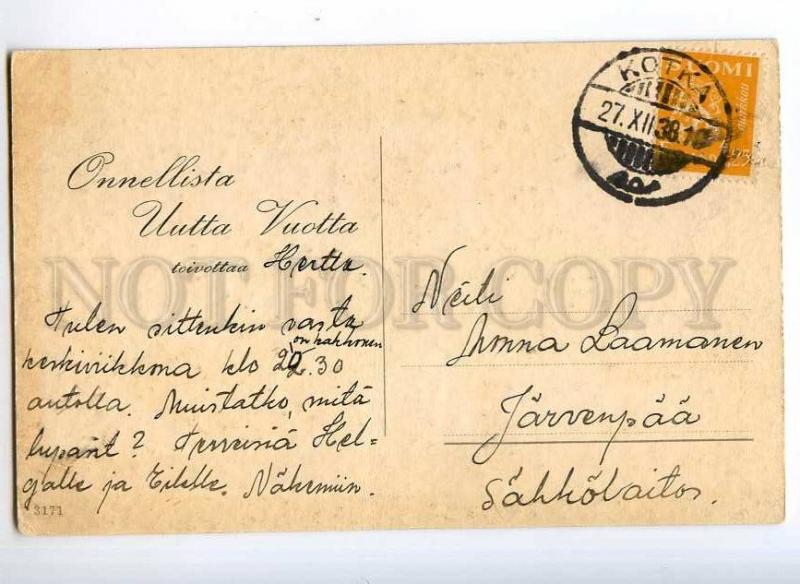 Onnellista
Uutta Vuotta
toivottaa Hertta.
Tulen sittenkin vasta
on kakkonen
keskiviikkona klo 22.30
autolla. Muistatko, mitä
lupasit? Terveisiä Hel-
galle ja Eilelle. Näkemiin.
3171
SUOMI
markkaa
KOTKA
27.XII.38.
Neiti
Monna Laamanen
Järvenpää
Sähkölaitos.
NOT FOR COPY